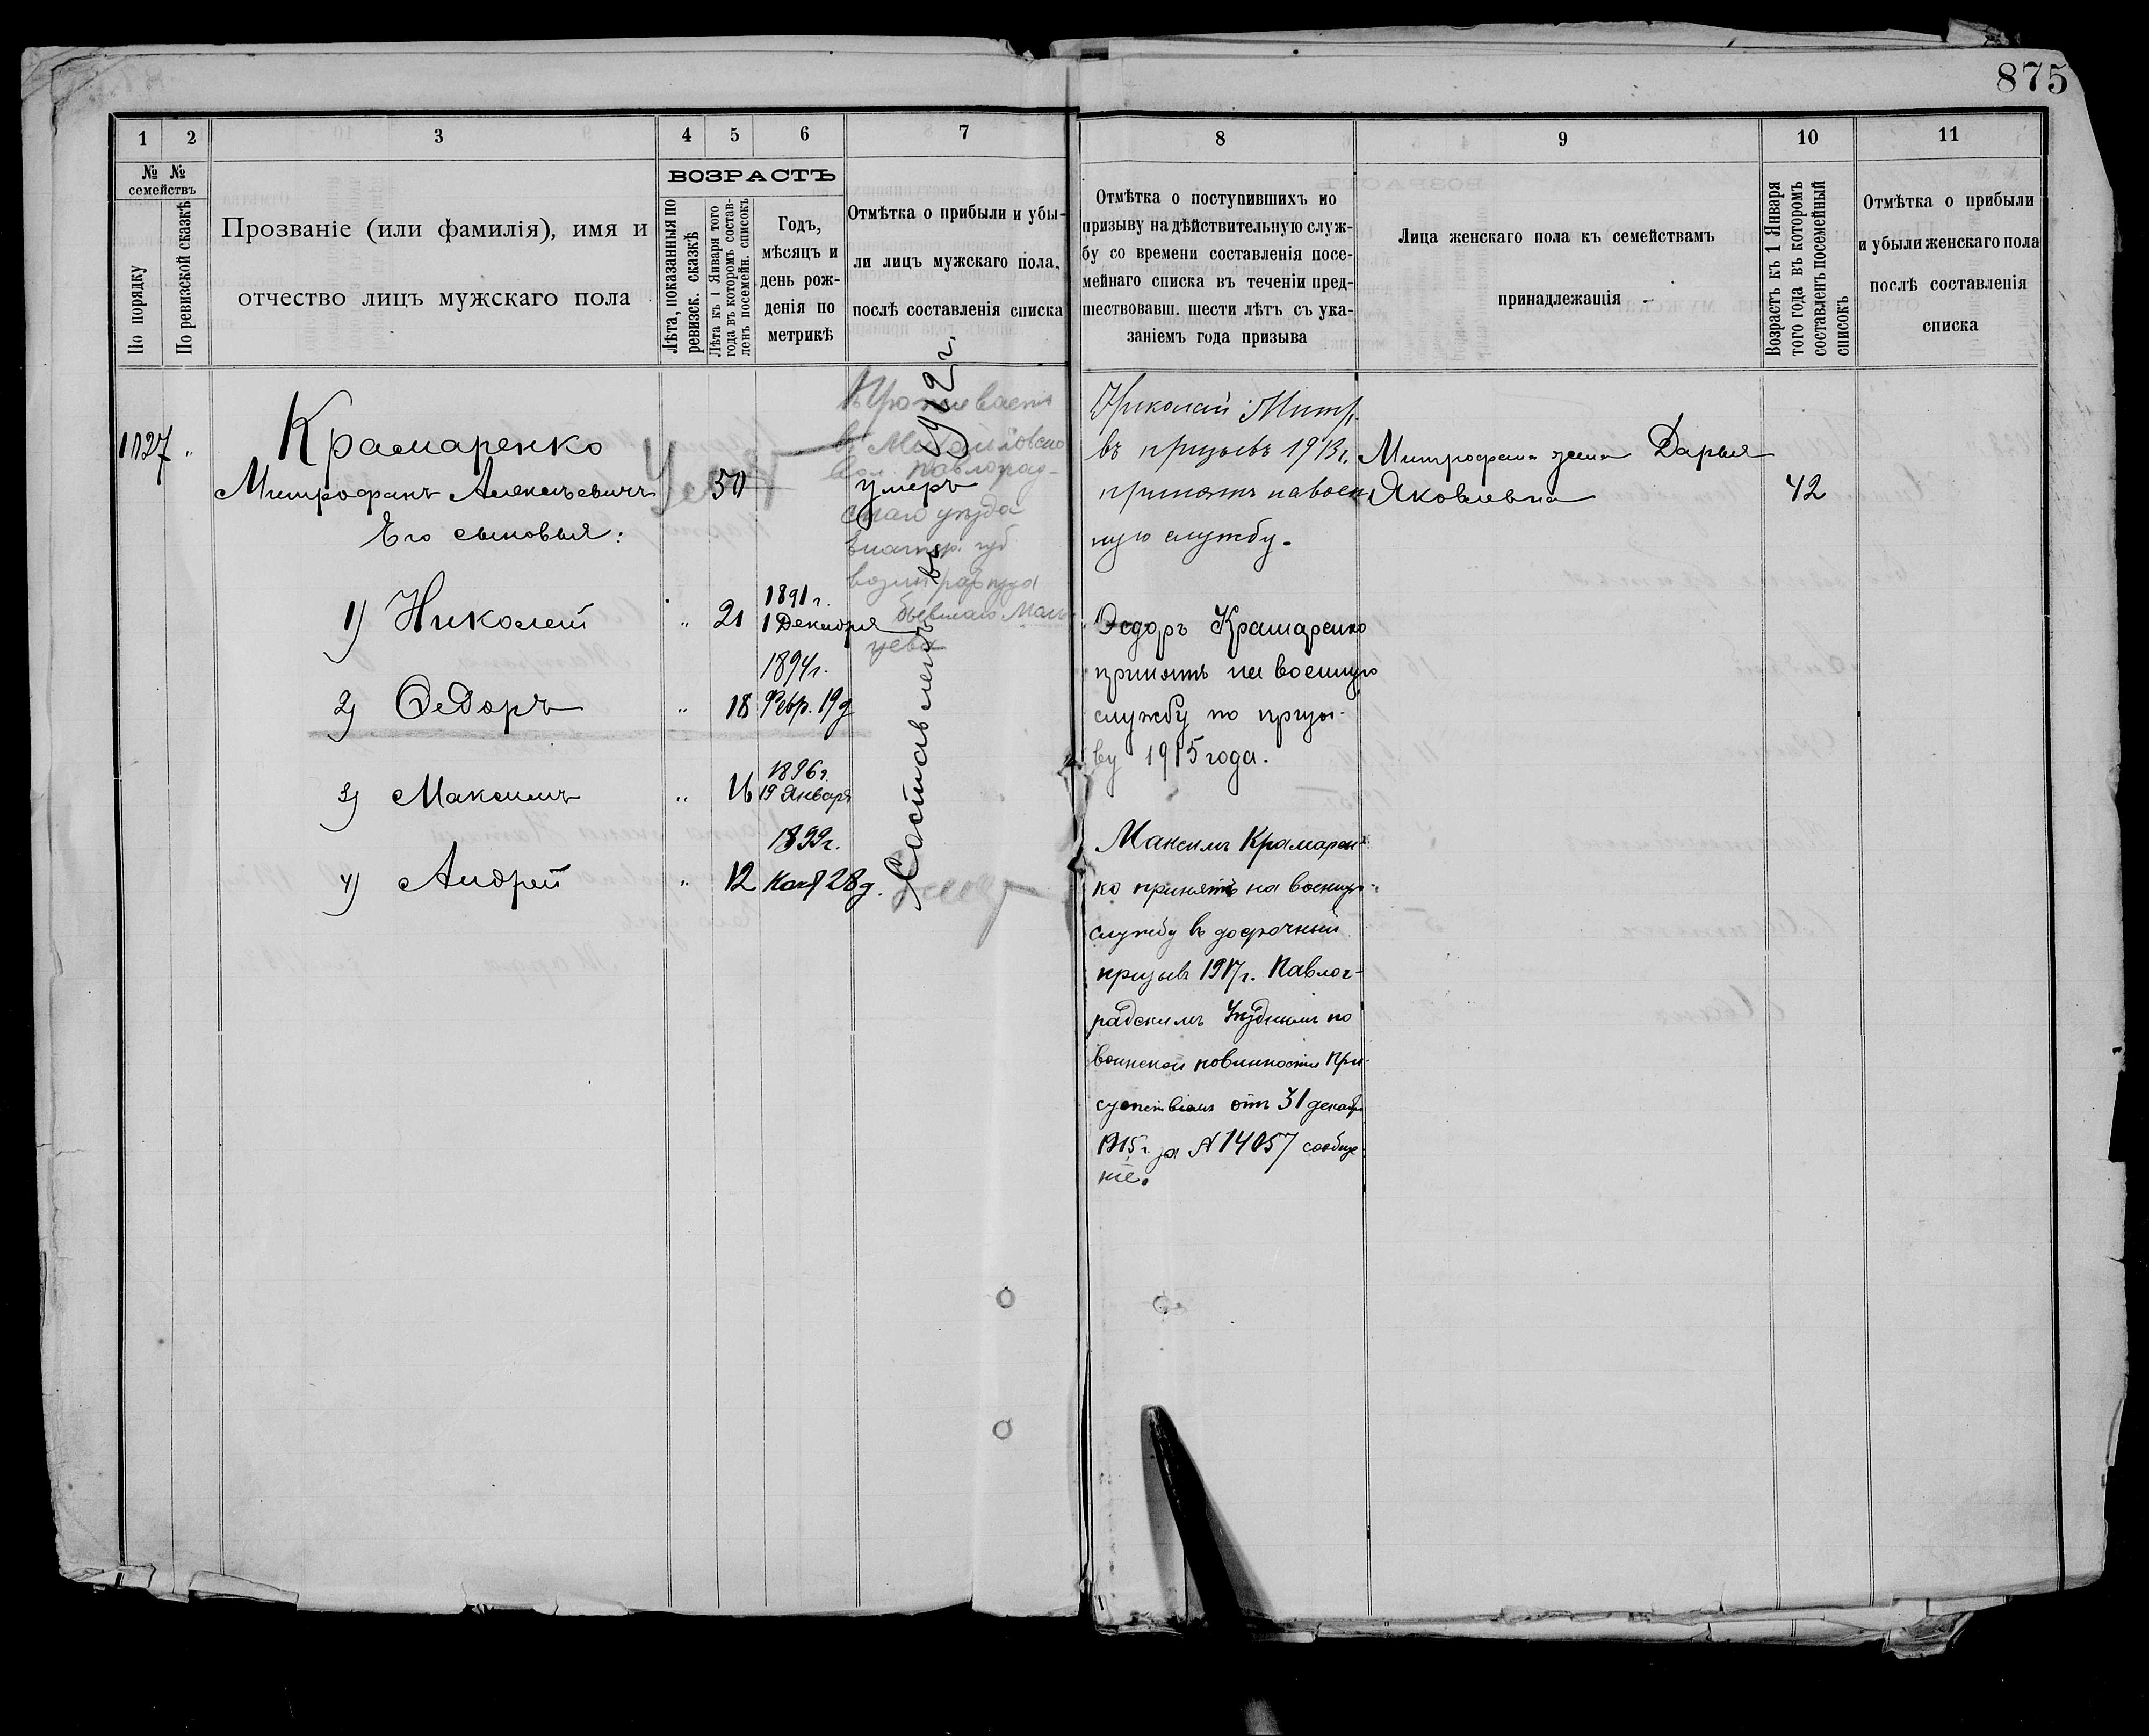 875
1 2 3 4 5 6 7
№ №
семействъ
По порядку
По ревизской сказкѣ
Прозваніе (или фамилія), имя и
отчество лицъ мужскаго пола
ВОЗРАСТЪ
Лѣта, показанныя по
ревизск. сказкѣ
Лѣта къ 1 Января того
года въ которомъ состав-
ленъ посемейн. списокъ
Годъ,
мѣсяцъ и
день рож-
денія по
метрикѣ
Отмѣтка о прибыли и убы-
ли лицъ мужскаго пола,
послѣ составленія списка
8 9 10 11
Отмѣтка о поступившихъ по
призыву на дѣйствительную служ-
бу со времени составленія посе-
мейнаго списка въ теченіи пред-
шествовавш. шести лѣтъ съ ука-
заніемъ года призыва
Лица женскаго пола къ семействамъ
принадлежащія
Возрастъ къ 1 Января
того года въ которомъ
составленъ посемейный
списокъ
Отмѣтка о прибыли
и убыли женскаго пола
послѣ составленія
списка
1127 "
Крамаренко
Митрофанъ Алексѣевичъ 50
Его сыновья:
1) Николай " 21 1891 г.
1 Декабря
2) Ѳедоръ " 18 1894 г.
Февр. 19 д
3) Максимъ " 16 1896 г.
19 Января
4) Андрей " 12 1899 г.
28 д.
Проживаетъ
в. Михайловско
вол. Павлоград-
умеръ
скаго уѣзда
губ
бывшаго
Составленъ въ 912 г.
Николай Митр.
въ призывъ 1913 г.
принятъ на воен
ную службу.
Ѳедоръ Крамаренко
принятъ на военную
службу по призы-
ву 1915 года.
Максимъ Крамарен
ко принятъ на военную
службу въ досрочный
призывъ 1917 г. Павлог-
радскимъ Уѣзднымъ по
воинской повинности При-
сутствіемъ отъ 31 декабр
1915 г. за № 14057 сообще
ніе.
Митрофана жена Дарья
Яковлевна 42